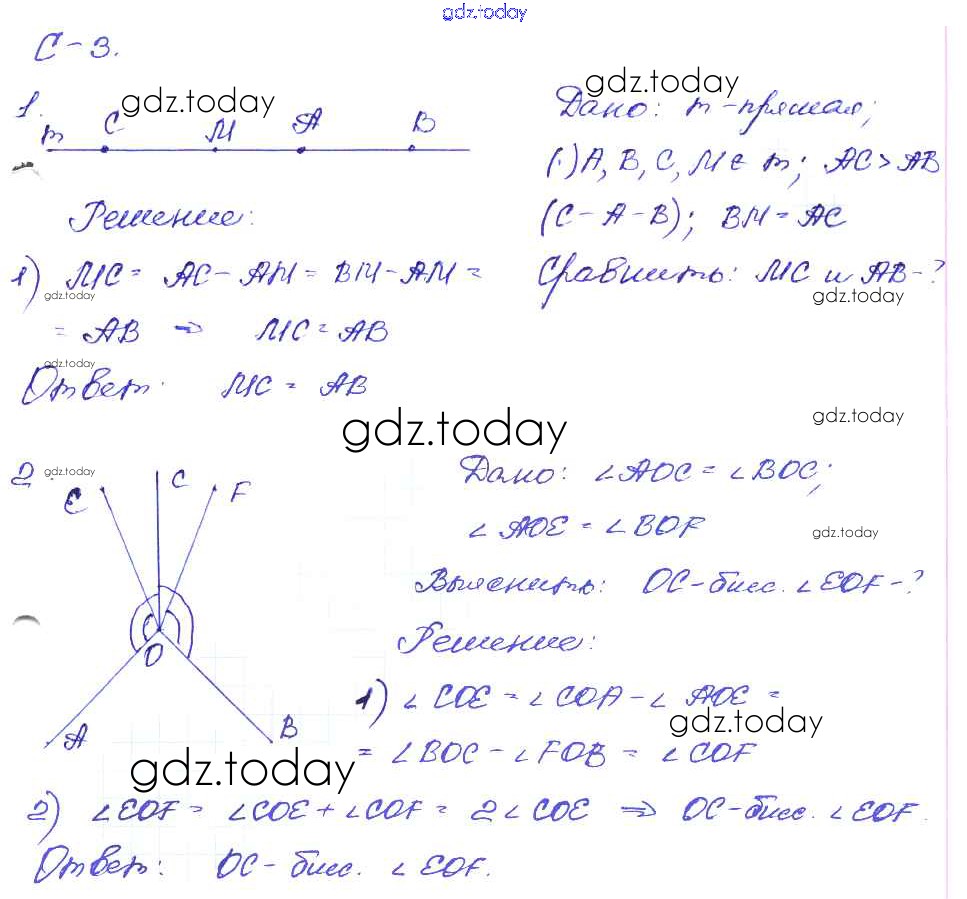 gdz.today
С-3.
1.
gdz.today
m C M A B
gdz.today
Дано: m-прямая;
(·) A, B, C, M ∈ m; AC > AB
(C-A-B); BM = AC
Сравнить: MC и AB-?
gdz.today
Решение:
1) MC = AC - AM = BM - AM =
gdz.today
= AB ⇒ MC = AB
gdz.today
Ответ: MC = AB
gdz.today
gdz.today
2.
gdz.today
E C F
O
A B
Дано: ∠AOC = ∠BOC;
∠AOE = ∠BOF
gdz.today
Выяснить: OC-бисс. ∠EOF-?
Решение:
1) ∠COE = ∠COA - ∠AOE =
gdz.today
= ∠BOC - ∠FOB = ∠COF
gdz.today
2) ∠EOF = ∠COE + ∠COF = 2∠COE ⇒ OC-бисс. ∠EOF.
Ответ: OC-бисс. ∠EOF.